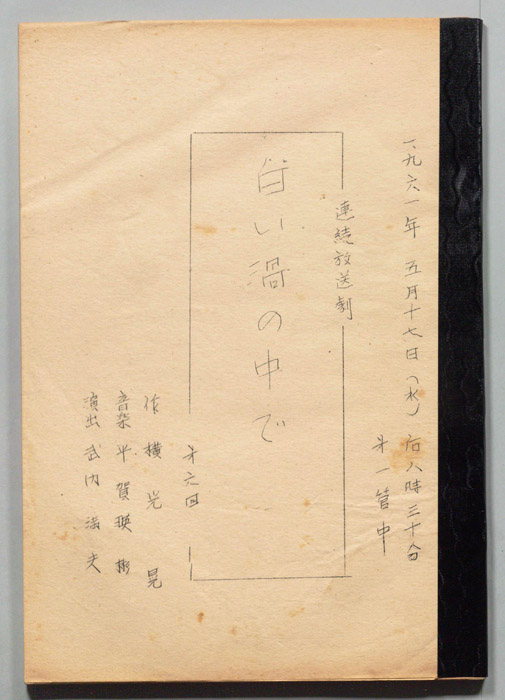 一、九六一年 五月十七日（水） 后八時三十分
第一管中
連続放送劇
白い渦の中で
第六回
作 横光晃
音楽 平賀瑛彬
演出 武内